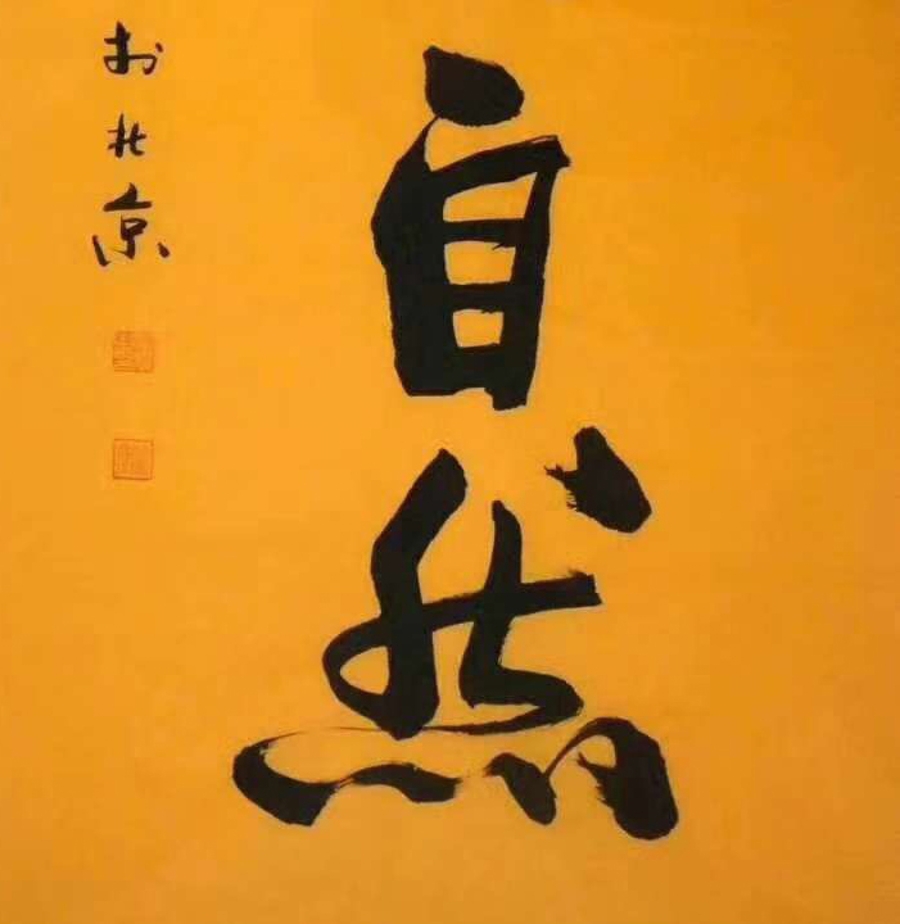 自然
於北京